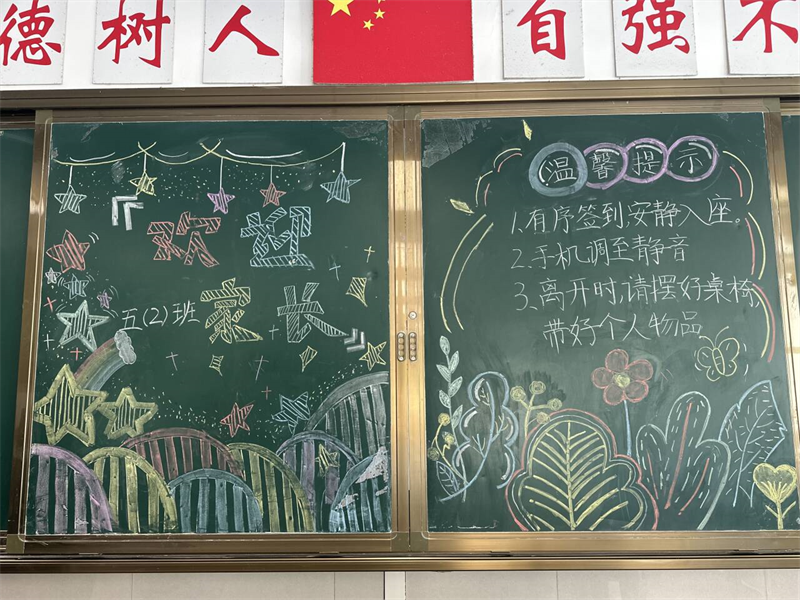 德树人 自强不
欢迎
家长
五(2)班
温馨提示
1.有序签到,安静入座。
2.手机调至静音
3.离开时,请摆好桌椅,
带好个人物品